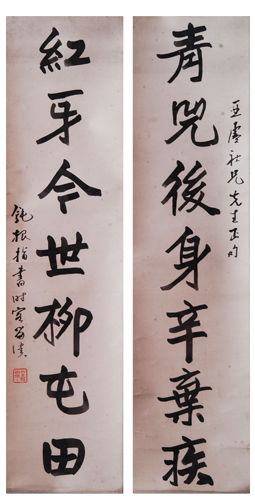 青兕後身辛棄疾
亞盧社兄先生正句
紅牙今世柳屯田
鈍根指書時客